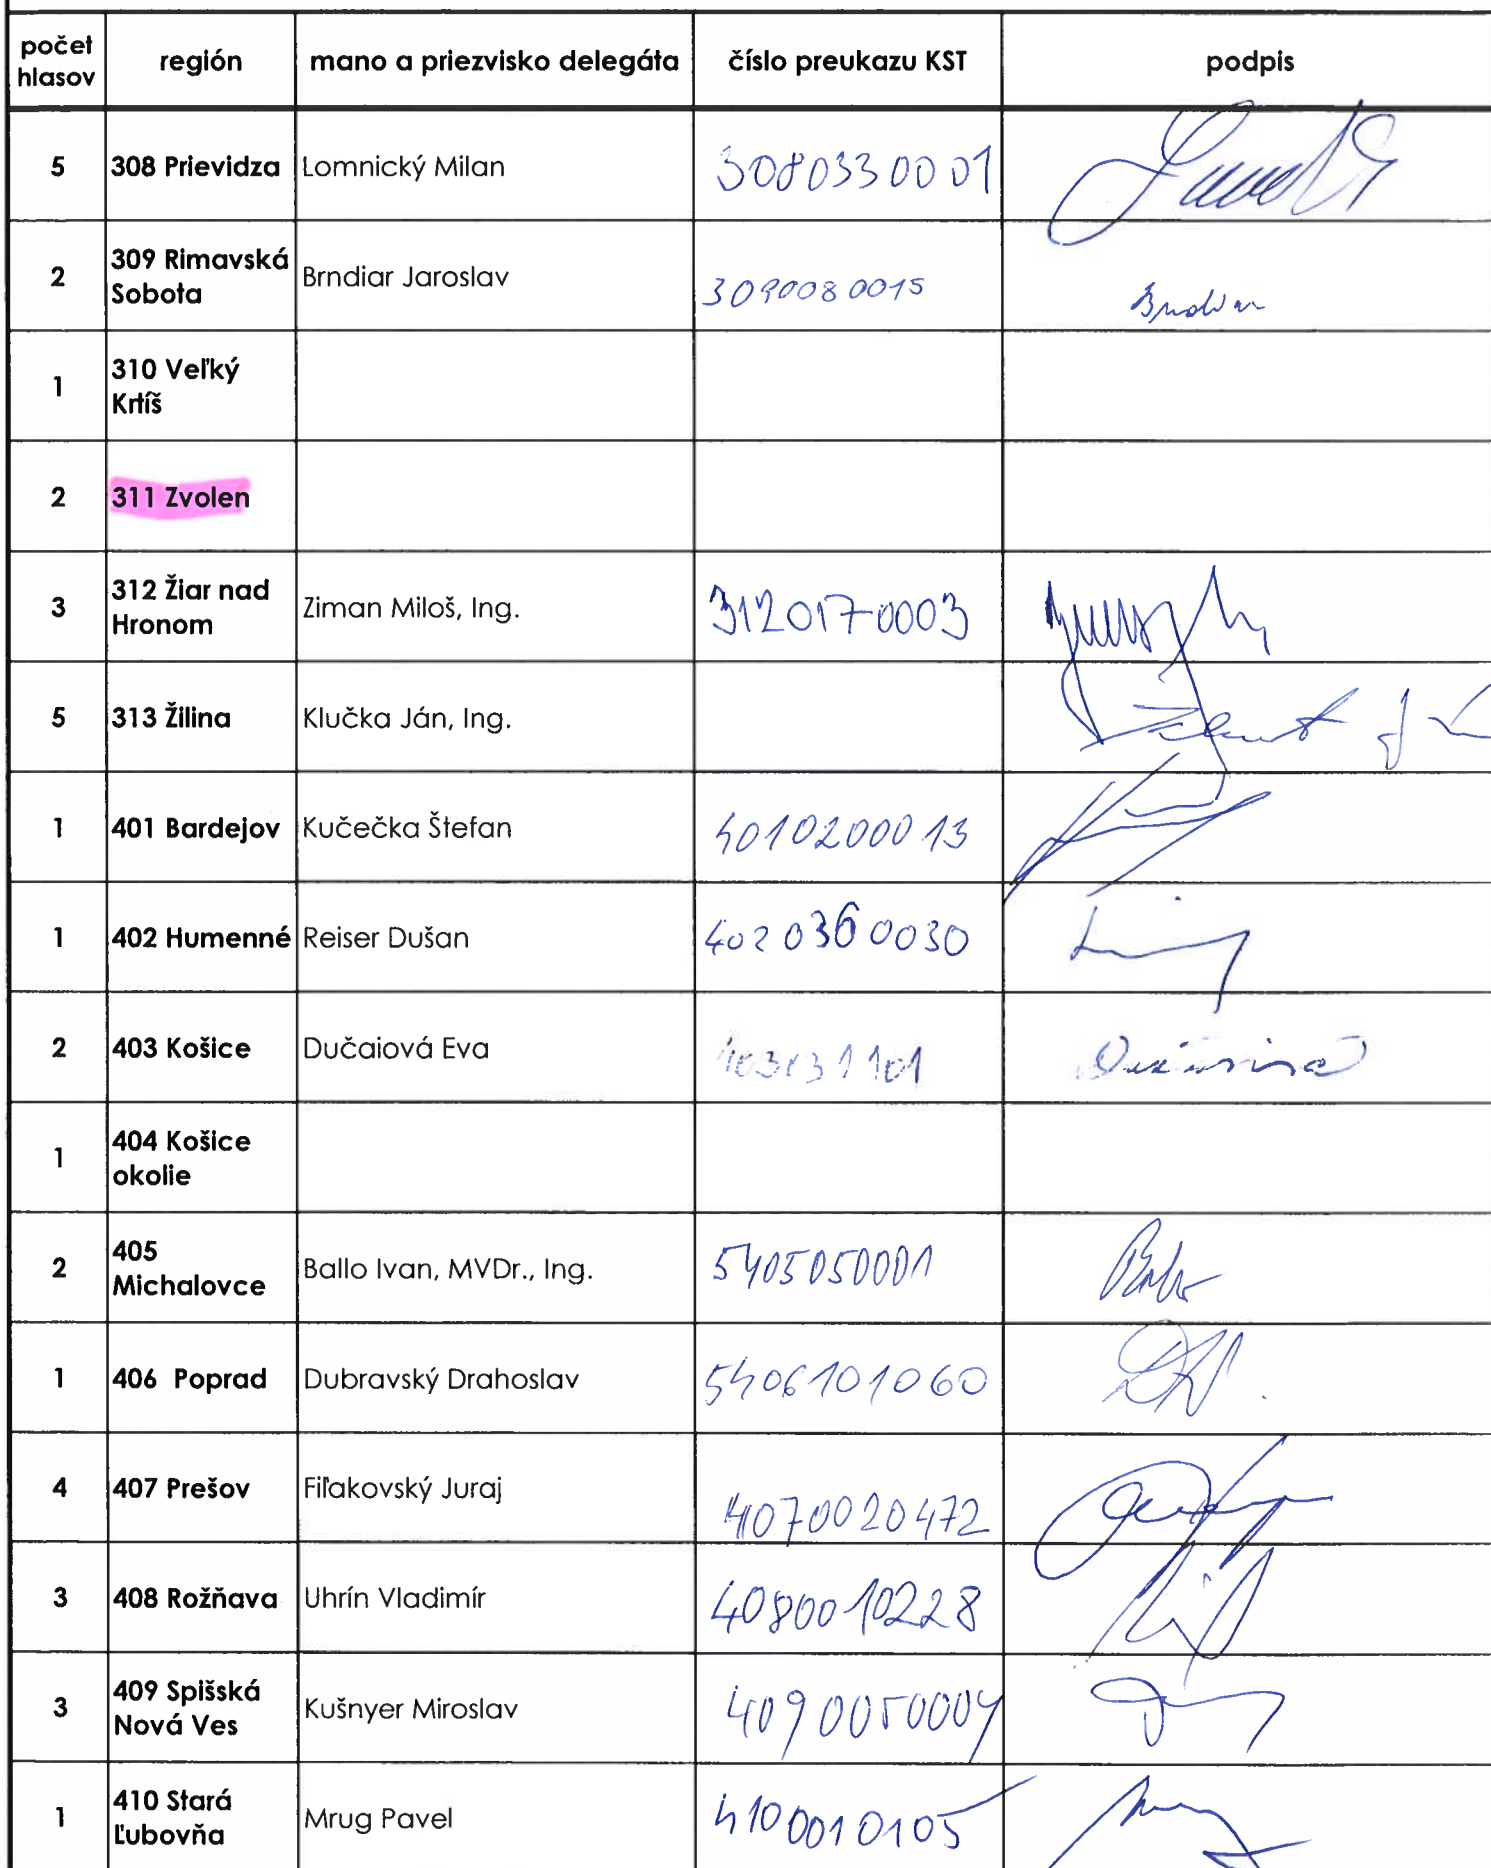 počet hlasov región mano a priezvisko delegáta číslo preukazu KST podpis
5 308 Prievidza Lomnický Milan 3080330001
2 309 Rimavská Sobota Brndiar Jaroslav 3090080015 Brndiar
1 310 Veľký Krtíš
2 311 Zvolen
3 312 Žiar nad Hronom Ziman Miloš, Ing. 3120170003
5 313 Žilina Klučka Ján, Ing.
1 401 Bardejov Kučečka Štefan 4010200013
1 402 Humenné Reiser Dušan 4020360030
2 403 Košice Dučaiová Eva
1 404 Košice okolie
2 405 Michalovce Ballo Ivan, MVDr., Ing. 5405050001
1 406 Poprad Dubravský Drahoslav 5406101060
4 407 Prešov Fiľakovský Juraj 4070020472
3 408 Rožňava Uhrín Vladimír 4080010228
3 409 Spišská Nová Ves Kušnyer Miroslav 4090050004
1 410 Stará Ľubovňa Mrug Pavel 4100010105